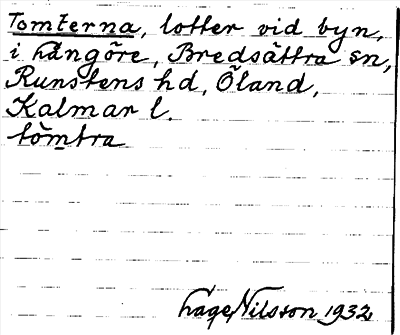 Tomterna, lotter vid byn,
i Långöre, Bredsättra sn,
Runstens hd, Öland,
Kalmar l.
tòmtra
Lage Nilsson 1932